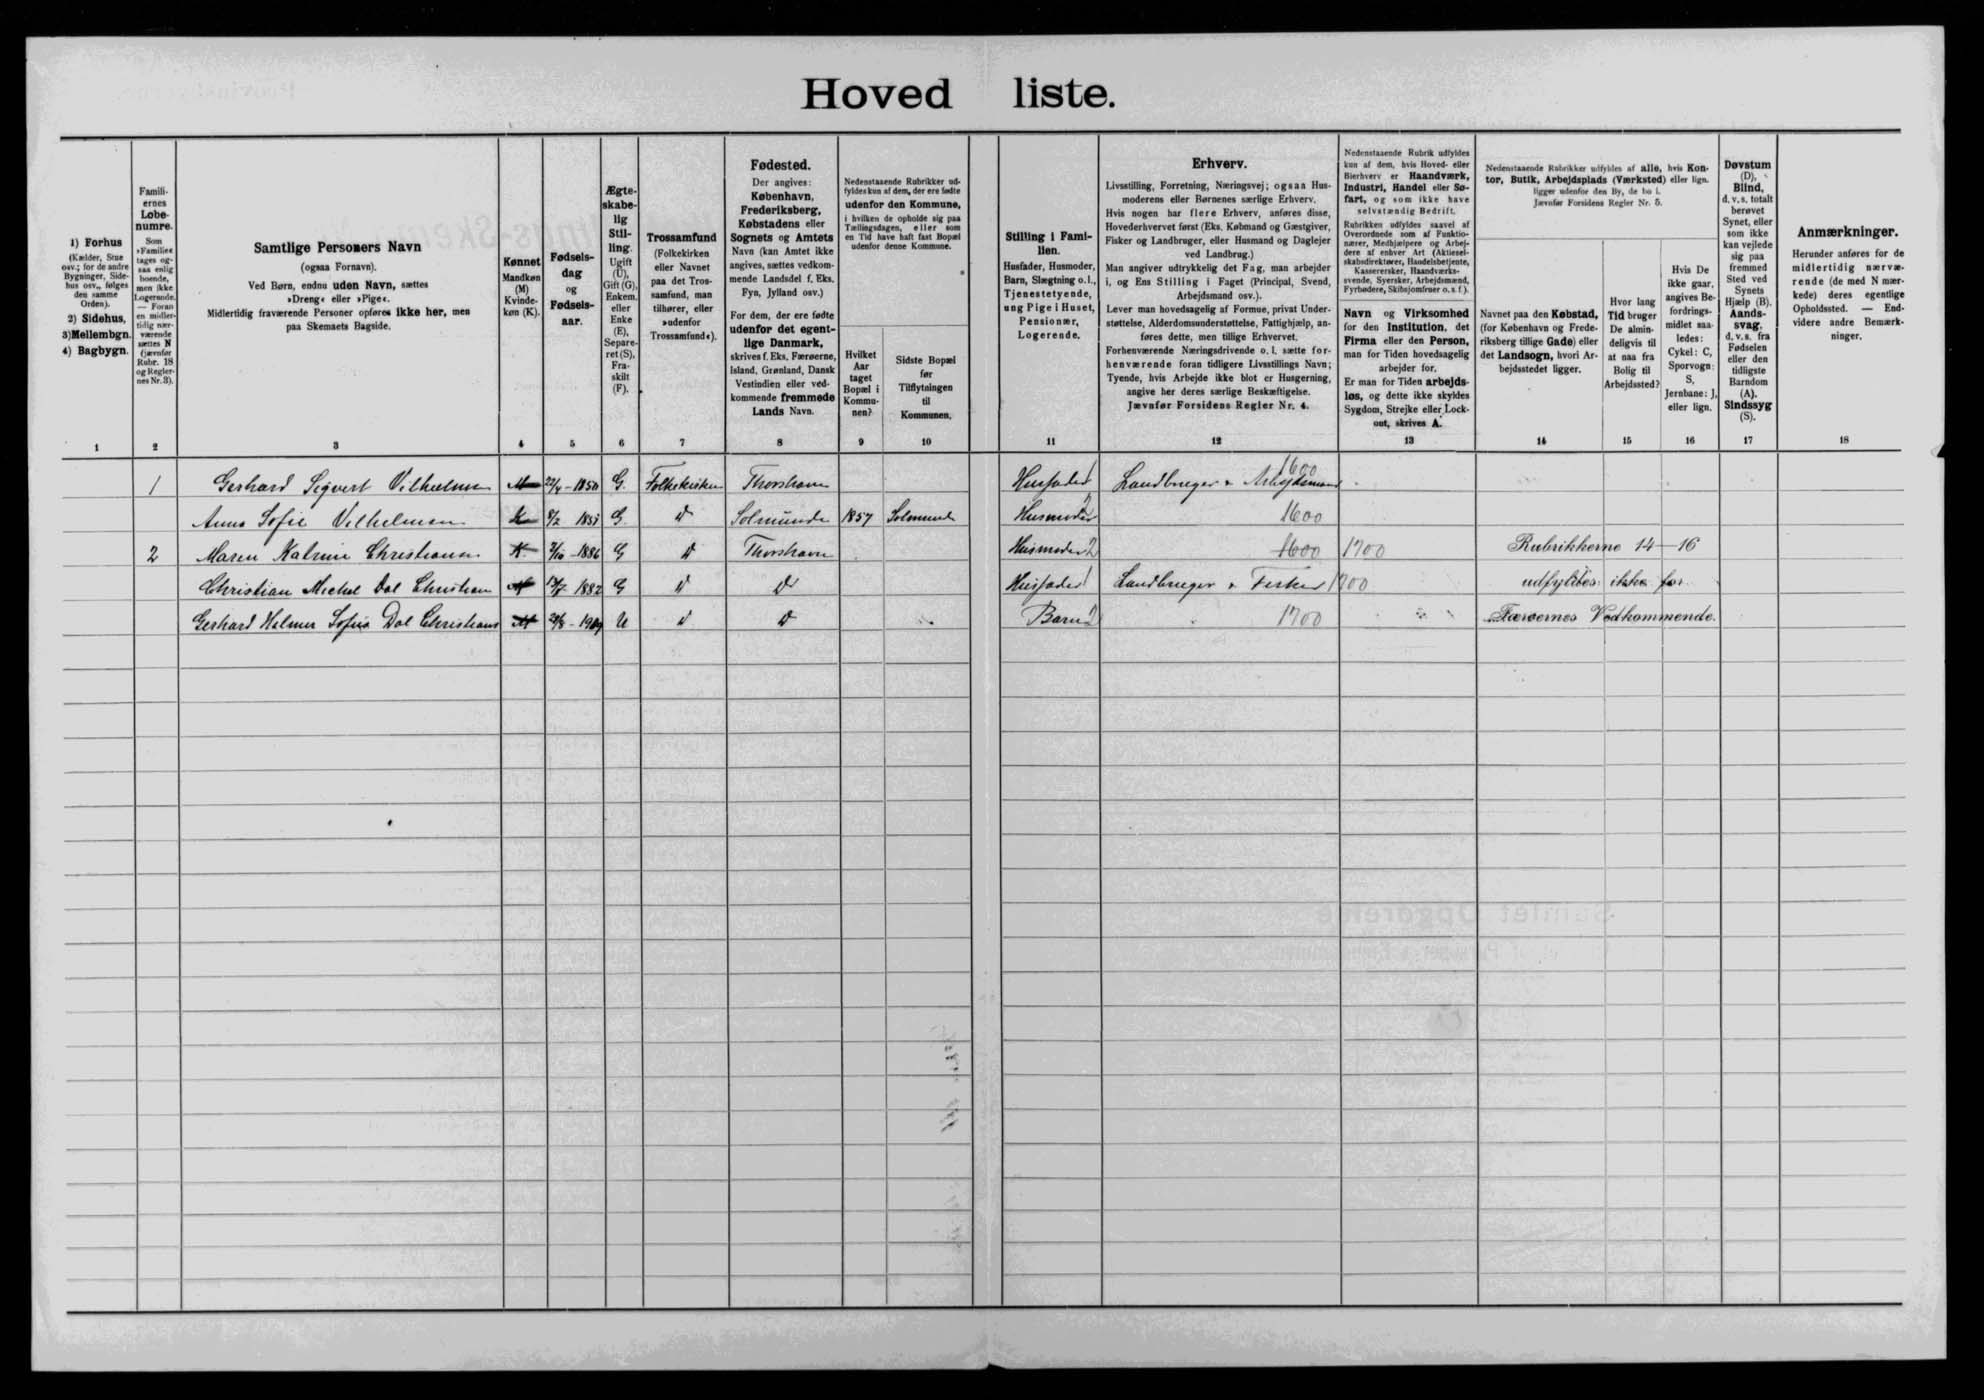 Hoved liste.
1) Forhus
(Kælder, Stue
osv.; for de andre
Bygninger, Side-
hus osv., følges
den samme
Orden).
2) Sidehus,
3) Mellembgn.
4) Bagbygn.
1
Famili-
ernes
Løbe-
numre.
Som
»Familie«
tages og-
saa enlig
boende,
men ikke
Logerende.
— Foran
en midler-
tidig nær-
værende
sættes N
(jævnfør
Rubr. 18
og Regler-
nes Nr. 3).
2
Samtlige Personers Navn
(ogsaa Fornavn).
Ved Børn, endnu uden Navn, sættes
»Dreng« eller »Pige«.
Midlertidig fraværende Personer opføres ikke her, men
paa Skemaets Bagside.
3
Kønnet
Mandkøn
(M)
Kvinde-
køn (K).
4
Fødsels-
dag
og
Fødsels-
aar.
5
Ægte-
skabe-
lig
Stil-
ling.
Ugift
(U),
Gift (G),
Enkem.
eller
Enke
(E),
Separe-
ret (S),
Fra-
skilt
(F).
6
Trossamfund
(Folkekirken
eller Navnet
paa det Tros-
samfund, man
tilhører, eller
»udenfor
Trossamfund«).
7
Fødested.
Der angives:
København,
Frederiksberg,
Købstadens eller
Sognets og Amtets
Navn (kan Amtet ikke
angives, sættes vedkom-
mende Landsdel f. Eks.
Fyn, Jylland osv.)
For dem, der ere fødte
udenfor det egent-
lige Danmark,
skrives f. Eks. Færøerne,
Island, Grønland, Dansk
Vestindien eller ved-
kommende fremmede
Lands Navn.
8
Nedenstaaende Rubrikker ud-
fyldes kun af dem, der ere fødte
udenfor den Kommune,
i hvilken de opholde sig paa
Tællingsdagen, eller som
en Tid have haft fast Bopæl
udenfor denne Kommune.
Hvilket
Aar
taget
Bopæl i
Kommu-
nen?
9
Sidste Bopæl
før
Tilflytningen
til
Kommunen.
10
Stilling i Fami-
lien.
Husfader, Husmoder,
Barn, Slægtning o. l.,
Tjenestetyende,
ung Pige i Huset,
Pensionær,
Logerende.
11
Erhverv.
Livsstilling, Forretning, Næringsvej; ogsaa Hus-
moderens eller Børnenes særlige Erhverv.
Hvis nogen har flere Erhverv, anføres disse,
Hovederhvervet først (Eks. Købmand og Gæstgiver,
Fisker og Landbruger, eller Husmand og Daglejer
ved Landbrug.)
Man angiver udtrykkelig det Fag, man arbejder
i, og Ens Stilling i Faget (Principal, Svend,
Arbejdsmand osv.).
Lever man hovedsagelig af Formue, privat Under-
støttelse, Alderdomsunderstøttelse, Fattighjælp, an-
føres dette, men tillige Erhvervet.
Forhenværende Næringsdrivende o. l. sætte for-
henværende foran tidligere Livsstillings Navn;
Tyende, hvis Arbejde ikke blot er Husgerning,
angive her deres særlige Beskæftigelse.
Jævnfør Forsidens Regler Nr. 4.
12
Nedenstaaende Rubrik udfyldes
kun af dem, hvis Hoved- eller
Bierhverv er Haandværk,
Industri, Handel eller Sø-
fart, og som ikke have
selvstændig Bedrift.
Rubrikken udfyldes saavel af
Overordnede som af Funktio-
nærer, Medhjælpere og Arbej-
dere af enhver Art (Aktiesel-
skabsdirektører, Handelsbetjente,
Kassererskær, Haandværks-
svende, Syersker, Arbejdsmænd,
Fyrbødere, Skibsjomfruer o. s. f.).
Navn og Virksomhed
for den Institution, det
Firma eller den Person,
man for Tiden hovedsagelig
arbejder for.
Er man for Tiden arbejds-
løs, og dette ikke skyldes
Sygdom, Strejke eller Lock-
out, skrives A.
13
Nedenstaaende Rubrikker udfyldes af alle, hvis Kon-
tor, Butik, Arbejdsplads (Værksted) eller lign.
ligger udenfor den By, de bo i.
Jævnfør Forsidens Regler Nr. 5.
Navnet paa den Købstad,
(for København og Frede-
riksberg tillige Gade) eller
det Landsogn, hvori Ar-
bejdsstedet ligger.
14
Hvor lang
Tid bruger
De almin-
deligvis til
at naa fra
Bolig til
Arbejdssted?
15
Hvis De
ikke gaar,
angives Be-
fordrings-
midlet saa-
ledes:
Cykel: C,
Sporvogn:
S,
Jernbane: J,
eller lign.
16
Døvstum
(D),
Blind,
d. v. s. totalt
berøvet
Synet, eller
som ikke
kan vejlede
sig paa
fremmed
Sted ved
Synets
Hjælp (B).
Aands-
svag,
d. v. s. fra
Fødselen
eller den
tidligste
Barndom
(A).
Sindssyg
(S).
17
Anmærkninger.
Herunder anføres for de
midlertidig nærvæ-
rende (de med N mær-
kede) deres egentlige
Opholdssted. — End-
videre andre Bemærk-
ninger.
18
1 Gerhard Sigvert Vilhelmsen M 22/4 - 1850 G. Folkekirken Thorshavn Husfader 1 Landbruger & Arbejdsmand 1600
Anna Sofie Vilhelmsen K 9/2 1853 G. d Solmunde 1857 Solmunde Husmoder 2 1600
2 Maren Katrine Christiansen K. 7/10 - 1886 G d Thorshavn Husmoder 2 1600 1700 Rubrikkerne 14 - 16
Christian Michel Dal Christians M 1882 G d d Husfader 1 Landbruger & Fisker 1700 udfyldes ikke for
Gerhard Helmer Sofus Dal Christians M 24/8 - 1909 U d d Barn 2 1700 Færøernes Vedkommende.